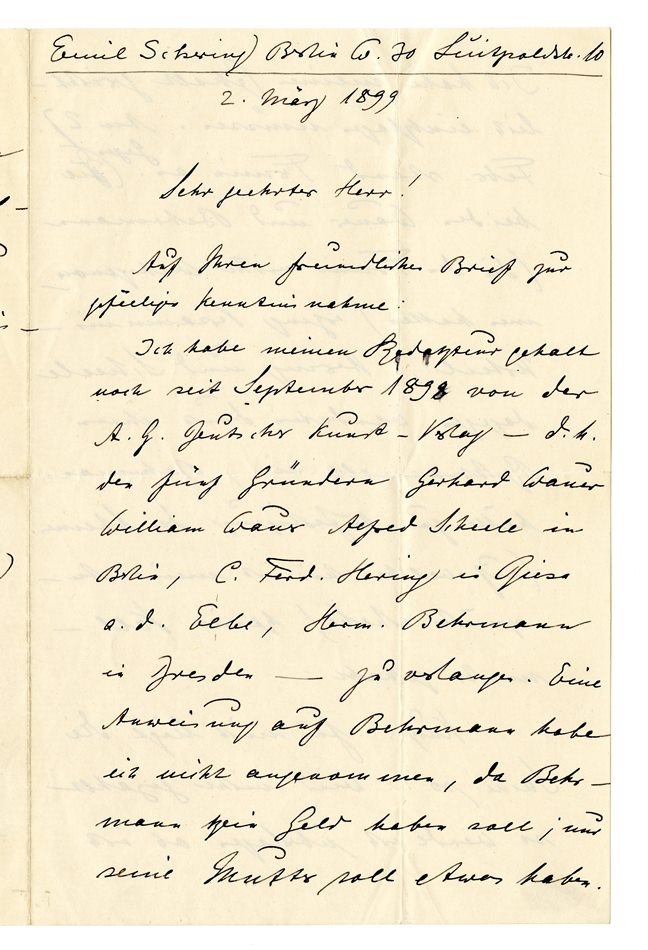 Emil Schering Berlin W. 30 Luitpoldstr. 10
2. März 1899
Sehr geehrter Herr!
Auf Ihren freundlichen Brief zur
gefälligen Kenntnisnahme:
Ich habe meinen Redakteurgehalt
noch seit September 1898 von der
A. G. Deutscher Kunst-Verlag – d. h.
den fünf Gründern Gerhard Wauer
William Wauer Alfred Scheele in
Berlin, C. Ferd. Hering in Riesa
a. d. Elbe, Herm. Behrmann
in Dresden — zu verlangen. Eine
Anweisung auf Behrmann habe
ich nicht angenommen, da Behr-
mann kein Geld haben soll; nur
seine Mutter soll etwas haben.